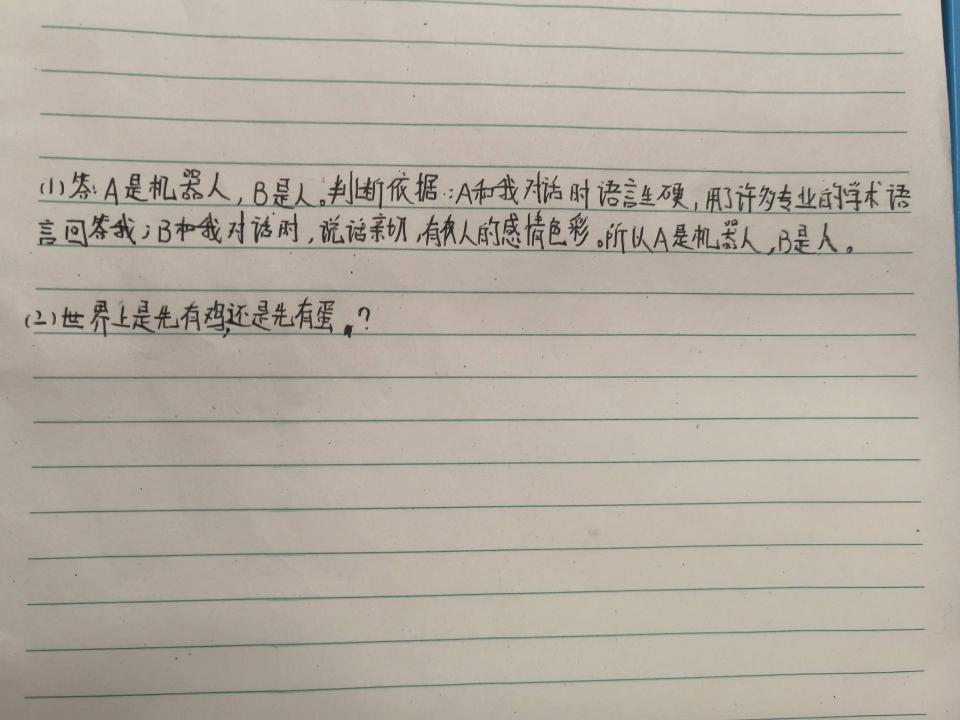 (1)答:A是机器人,B是人。判断依据:A和我对话时语言生硬,用了许多专业的学术语
言回答我;B和我对话时,说话亲切,有人的感情色彩。所以A是机器人,B是人。
(2)世界上是先有鸡,还是先有蛋?